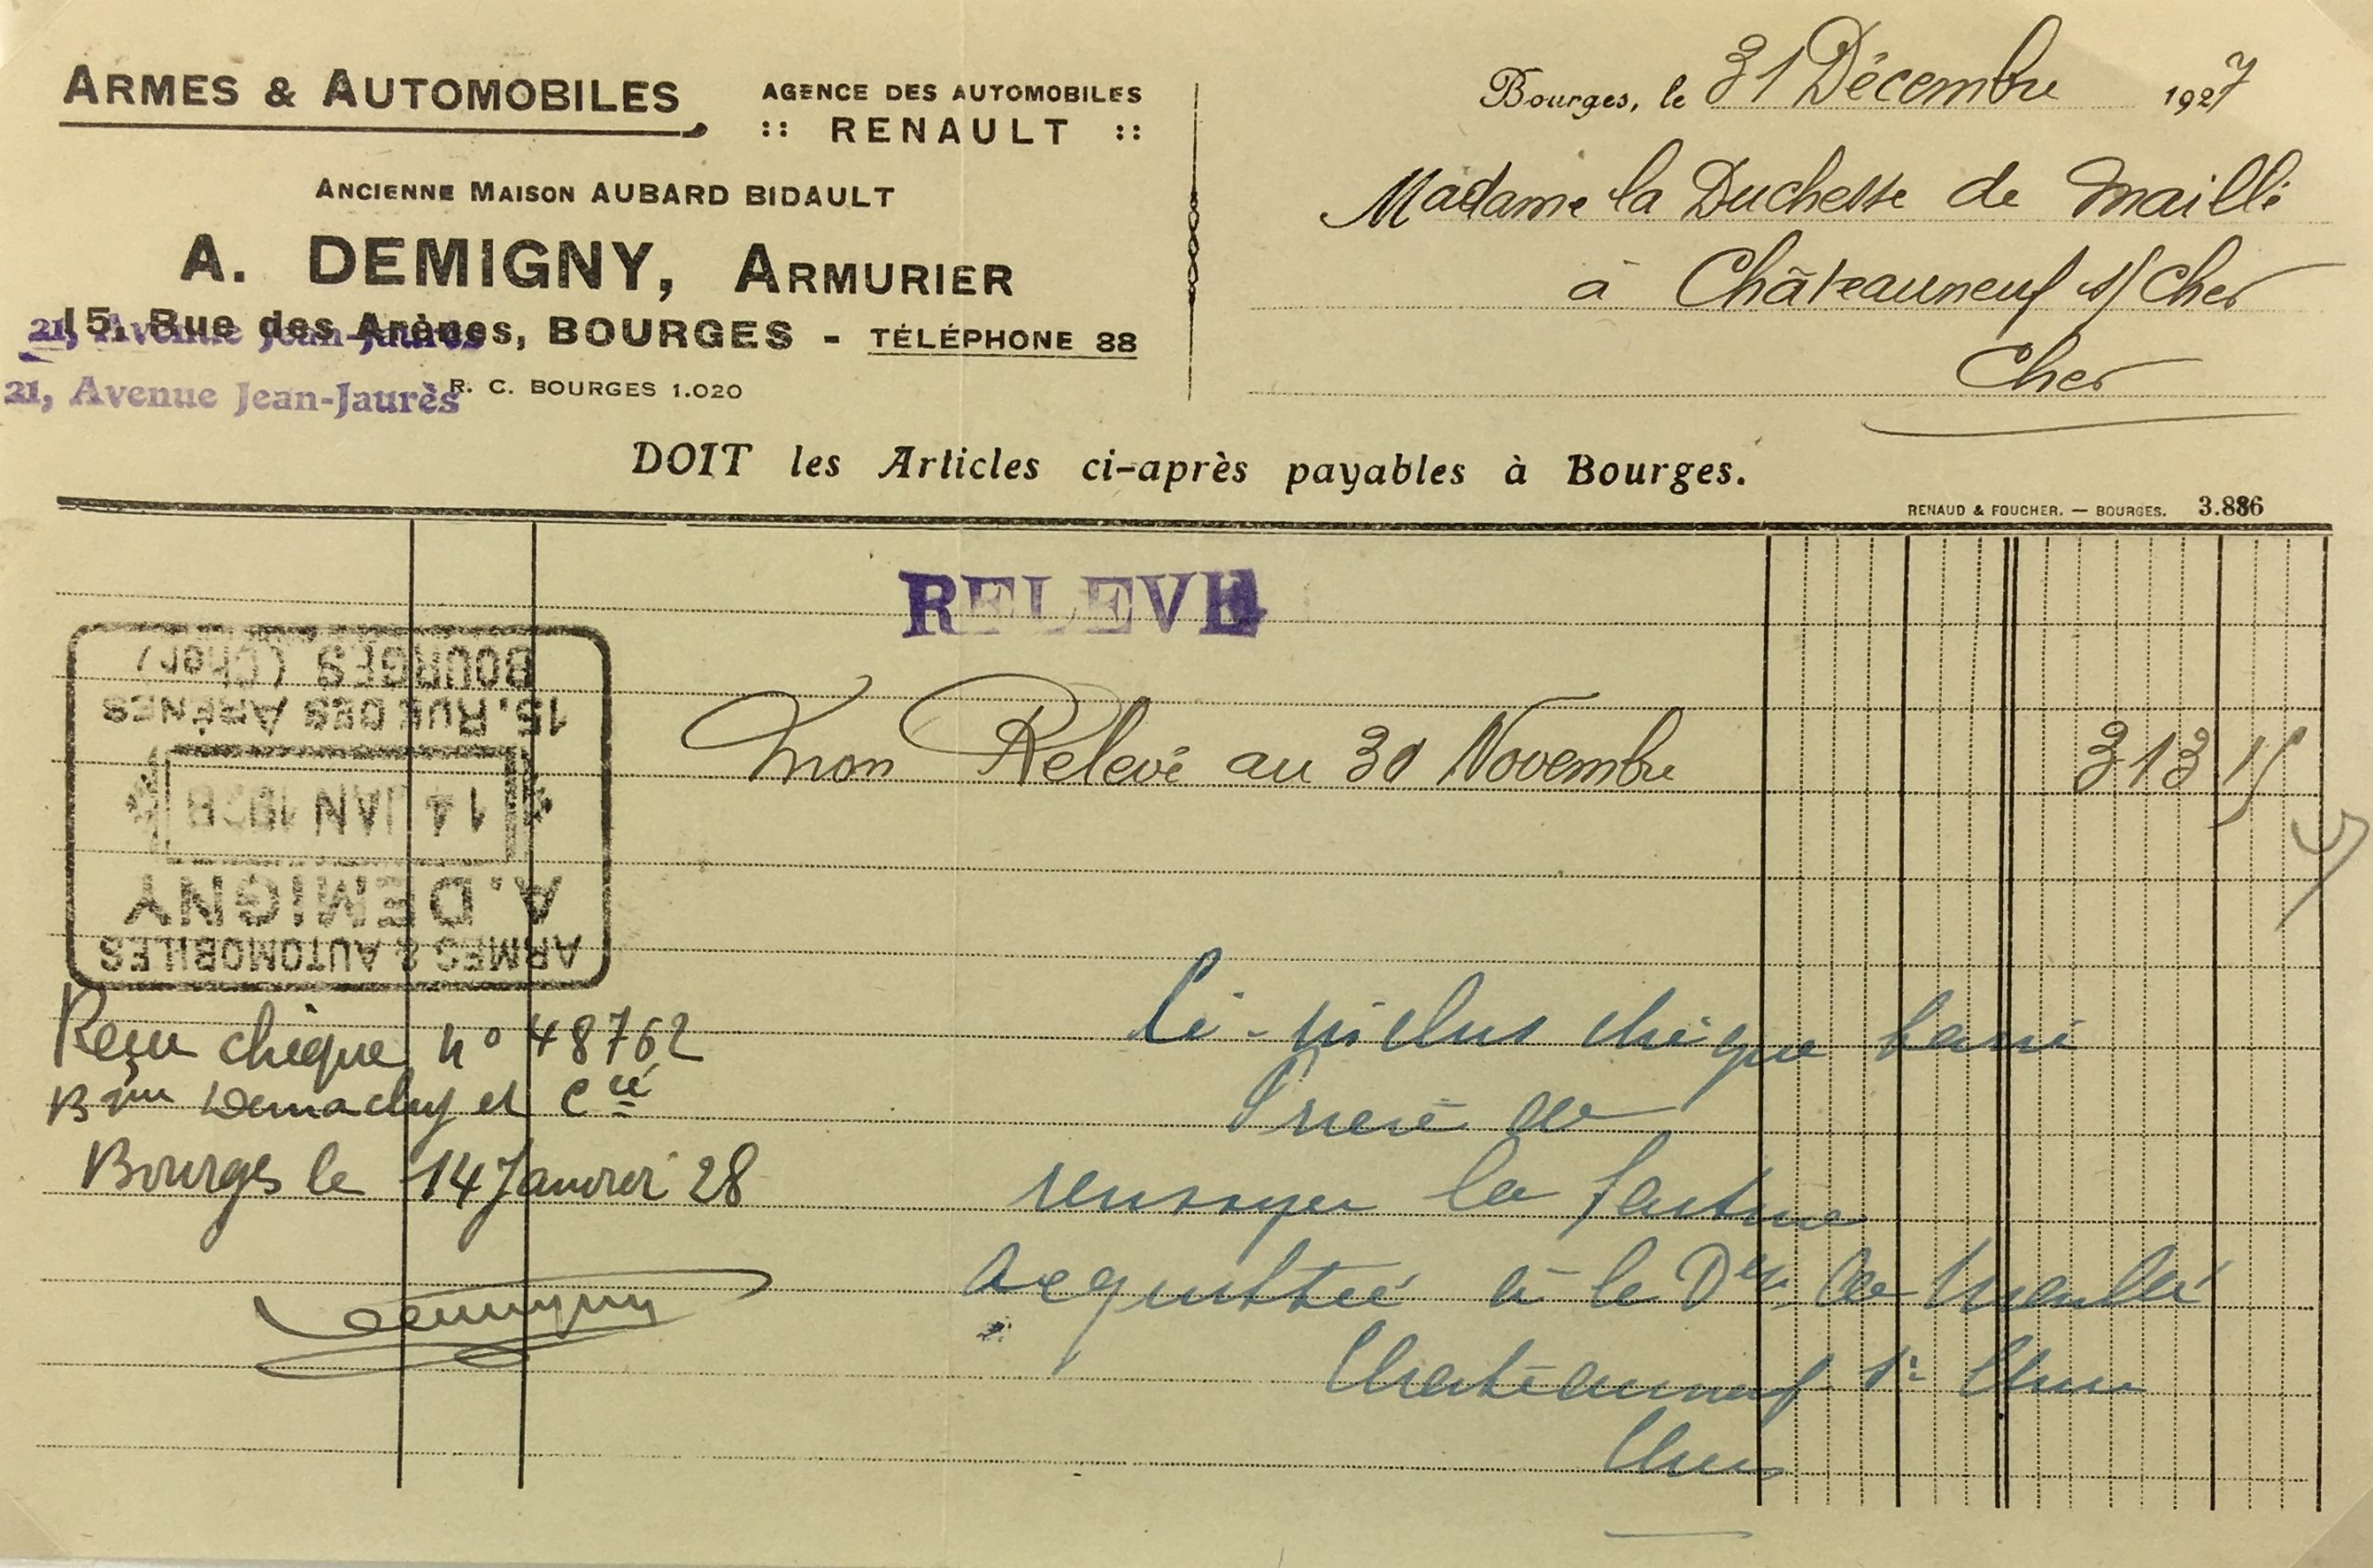 ARMES & AUTOMOBILES
AGENCE DES AUTOMOBILES
:: RENAULT ::
ANCIENNE MAISON AUBARD BIDAULT
A. DEMIGNY, ARMURIER
15, Rue des Arènes, BOURGES - TÉLÉPHONE 88
21, Avenue Jean-Jaurès
21, Avenue Jean-Jaurès
R. C. BOURGES 1.020
Bourges, le 31 Décembre 1927
Madame la Duchesse de Maillé
à Châteauneuf s/ Cher
Cher
DOIT les Articles ci-après payables à Bourges.
RENAUD & FOUCHER. — BOURGES. 3.886
RELEVÉ
Mon Relevé au 30 Novembre 313 15
ARMES & AUTOMOBILES
A. DEMIGNY
14 JAN 1928
15, RUE DES ARÈNES
BOURGES (Cher)
Reçu chèque n° 48762
Demachy et Cie
Bourges le 14 Janvier 28
Demigny
Ci-inclus chèque barré
Prière de
renvoyer la facture
acquittée à la Dsse de Maillé
Chateauneuf sr Cher
Cher